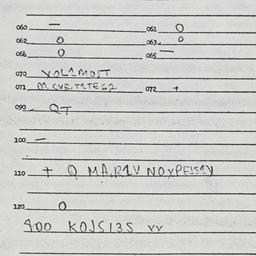 060 — 061 0
062 0 063 0
064 0 065 —
070 XOL1MOST
071 M. CVETITE 62 072 +
090 QT
100 —
110 + Q MARIV NOXPEJSIV
120 0
900 KOJS135 VV